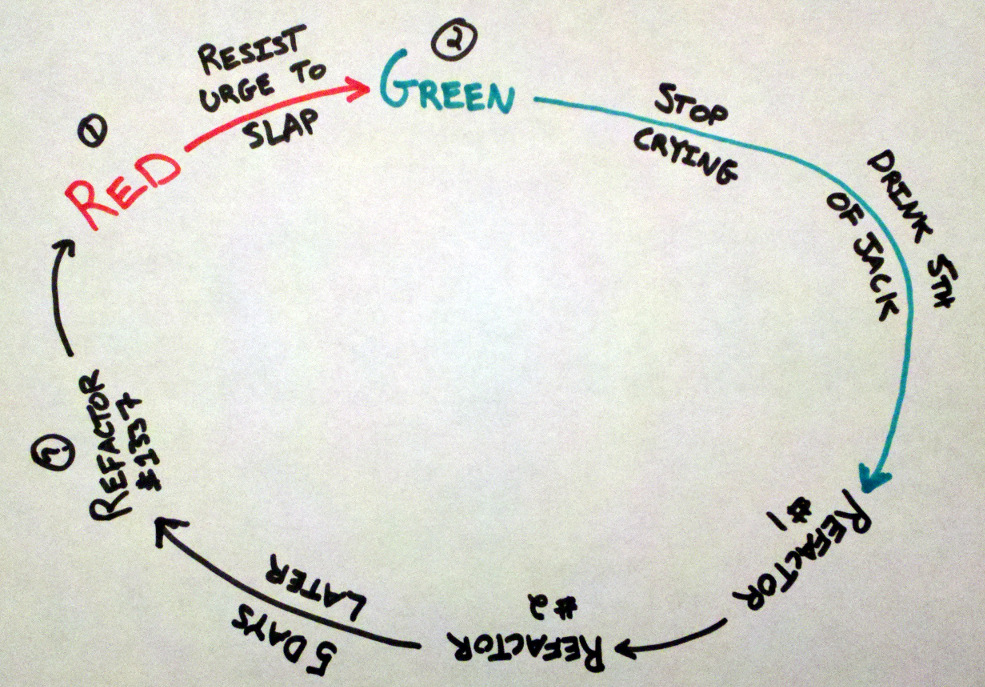 ①
RED
RESIST
URGE TO
SLAP
②
GREEN
STOP
CRYING
DRINK 5TH
OF JACK
REFACTOR
#1
REFACTOR
#2
5 DAYS
LATER
REFACTOR
#1337
?